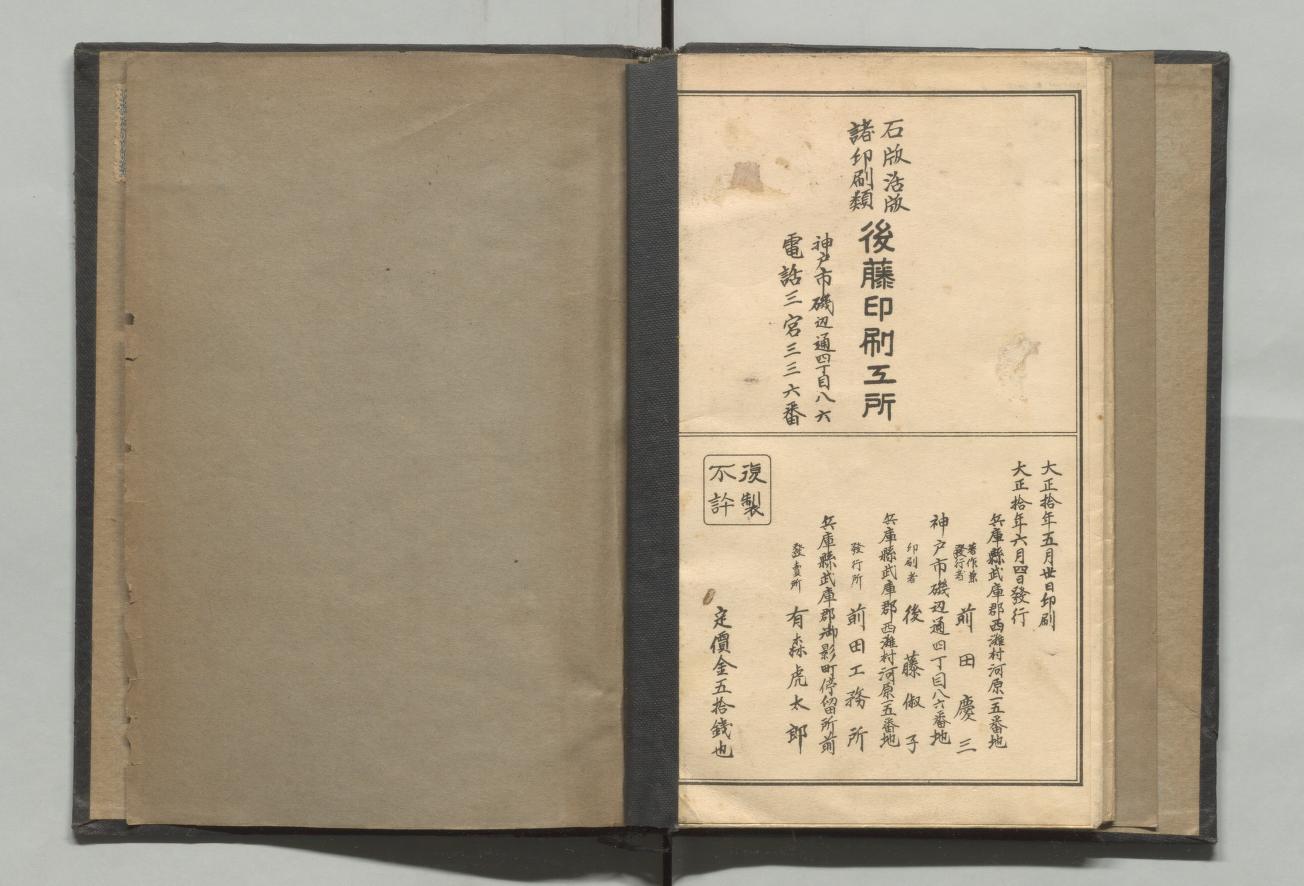 石版活版
諸印刷類
後藤印刷工所
神戸市磯辺通四丁目八六
電話三宮三三六番
大正拾年五月廿日印刷
大正拾年六月四日發行
兵庫縣武庫郡西灘村河原一五番地
著作兼
發行者
前田慶三
神戸市磯辺通四丁目八六番地
印刷者 後藤俶子
兵庫縣武庫郡西灘村河原一五番地
發行所 前田工務所
兵庫縣武庫郡御影町停留所前
發賣所 有森虎太郎
定價金五拾錢也
復製
不許